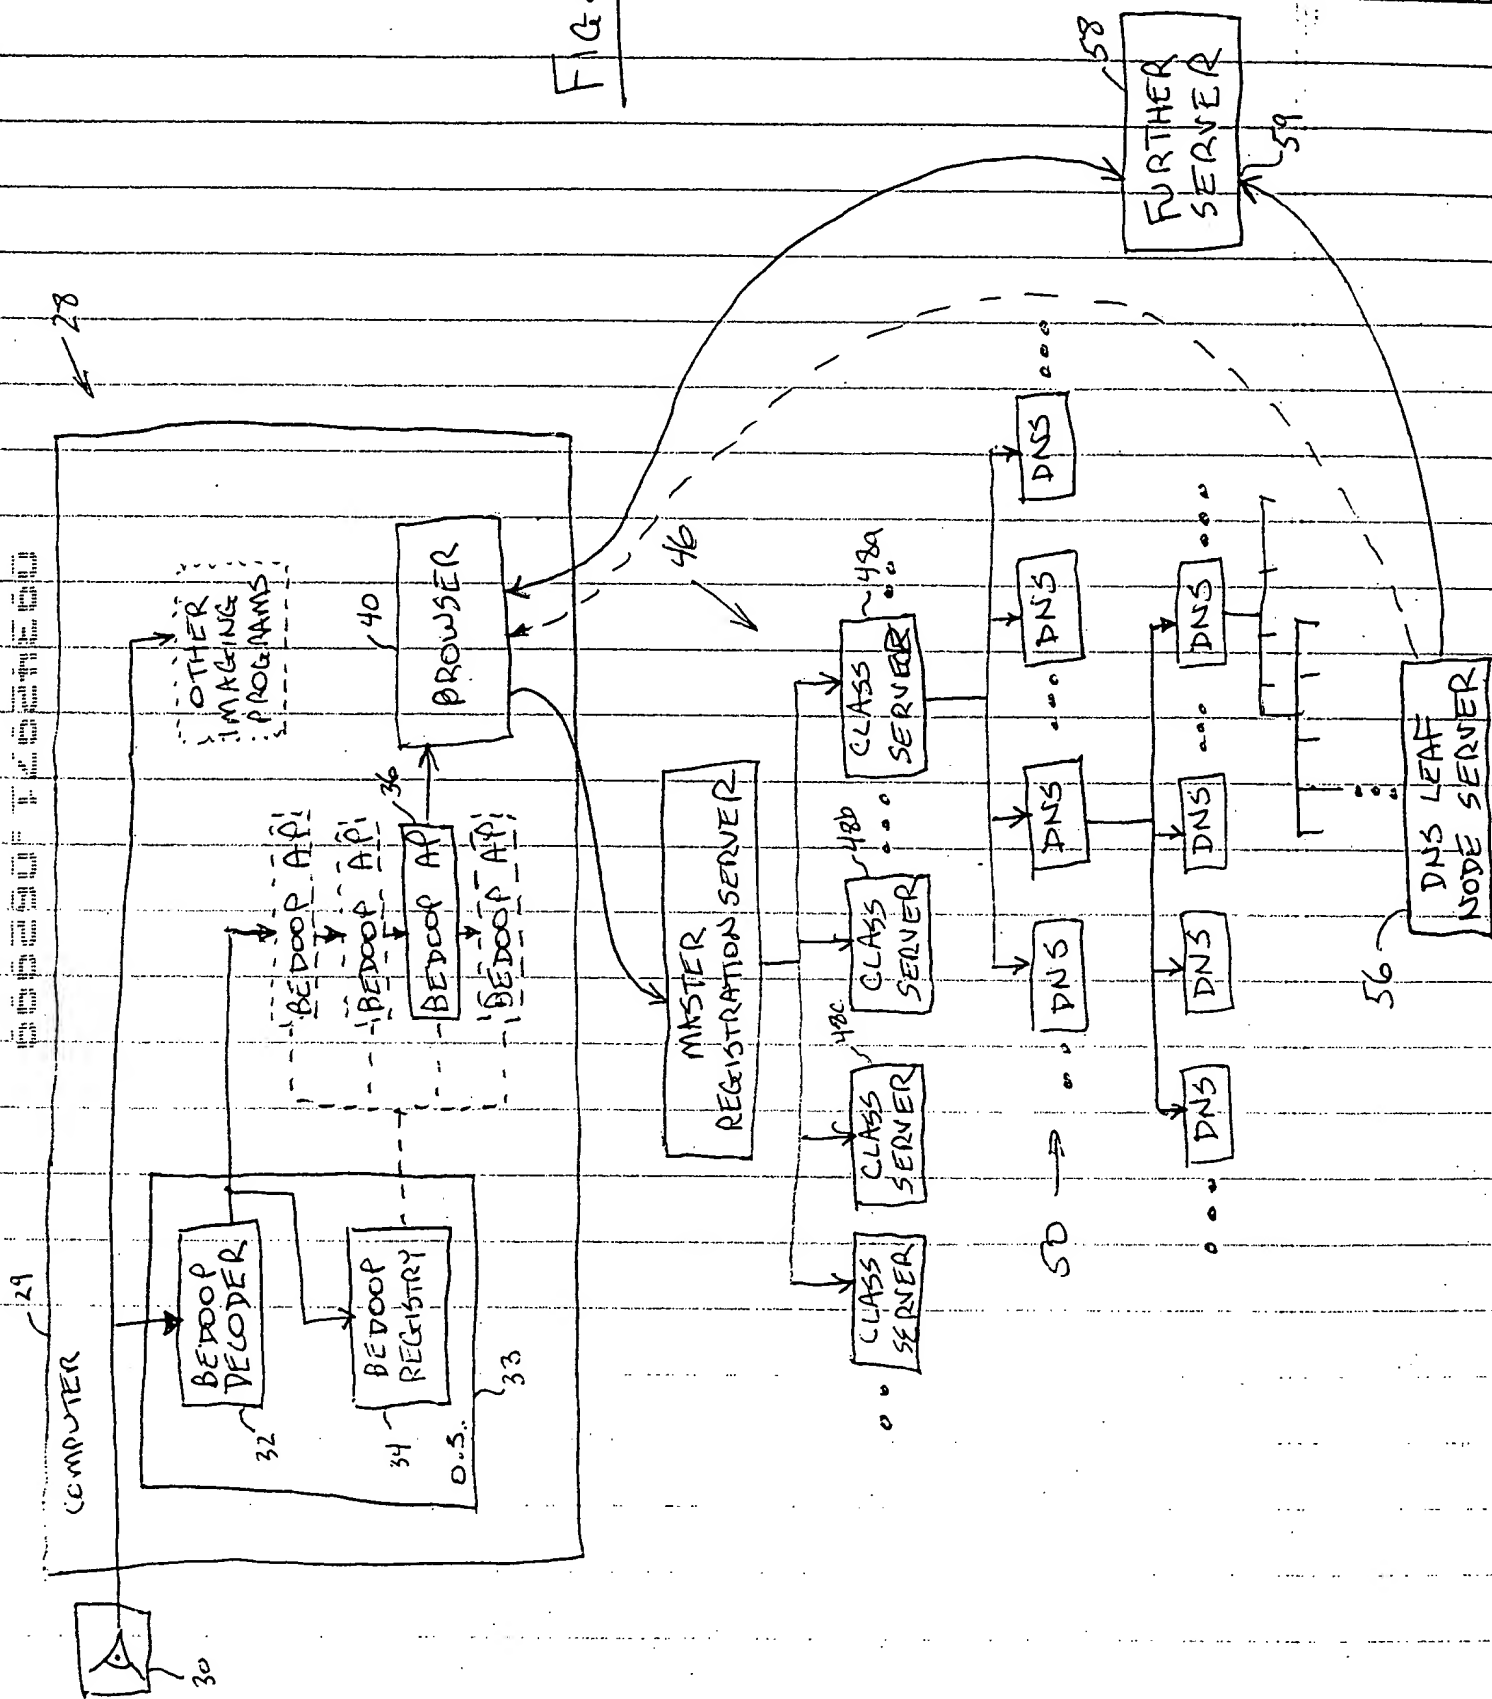 FIG.
28
29
COMPUTER
30
BEDOOP
DECODER
32
BEDOOP
REGISTRY
34
O.S.
33
OTHER
IMAGING
PROGRAMS
BEDOOP API
BEDOOP API
BEDOOP API
BEDOOP API
36
BROWSER
40
MASTER
REGISTRATION SERVER
46
CLASS
SERVER
CLASS
SERVER
48c
CLASS
SERVER
48b
CLASS
SERVER
48a
50
DNS
DNS
DNS
DNS
DNS
DNS
DNS
DNS
DNS LEAF
NODE SERVER
56
FURTHER
SERVER
58
59